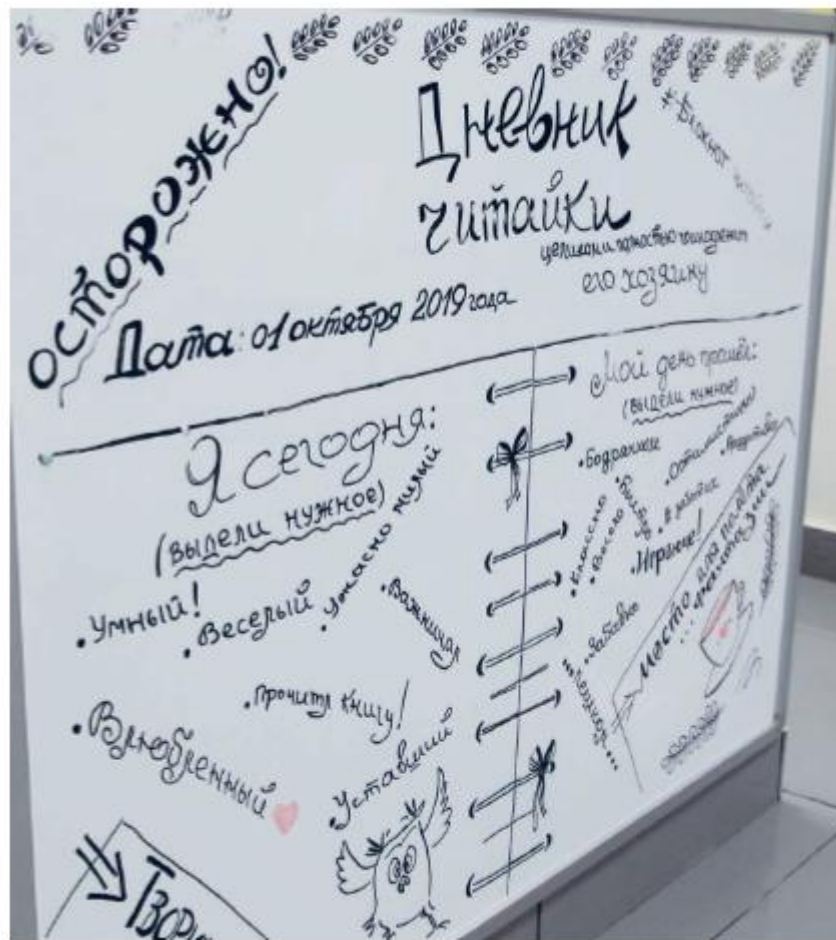 ОСТОРОЖНО!
Дневник
читайки
#Блокнот
целиком и полностью принадлежит
его хозяину
Дата: 01 октября 2019 года
Я сегодня:
(выдели нужное)
• Умный!
• Веселый
• Ужасно милый
• Важничал
• Прочитал книгу!
• Влюбленный
• Уставший
Мой день прошел:
(выдели нужное)
• Бодрячком
• Классно
• Весело
• В заботах
• Игранче!
• Забавно
Место для полёта
... фантазии